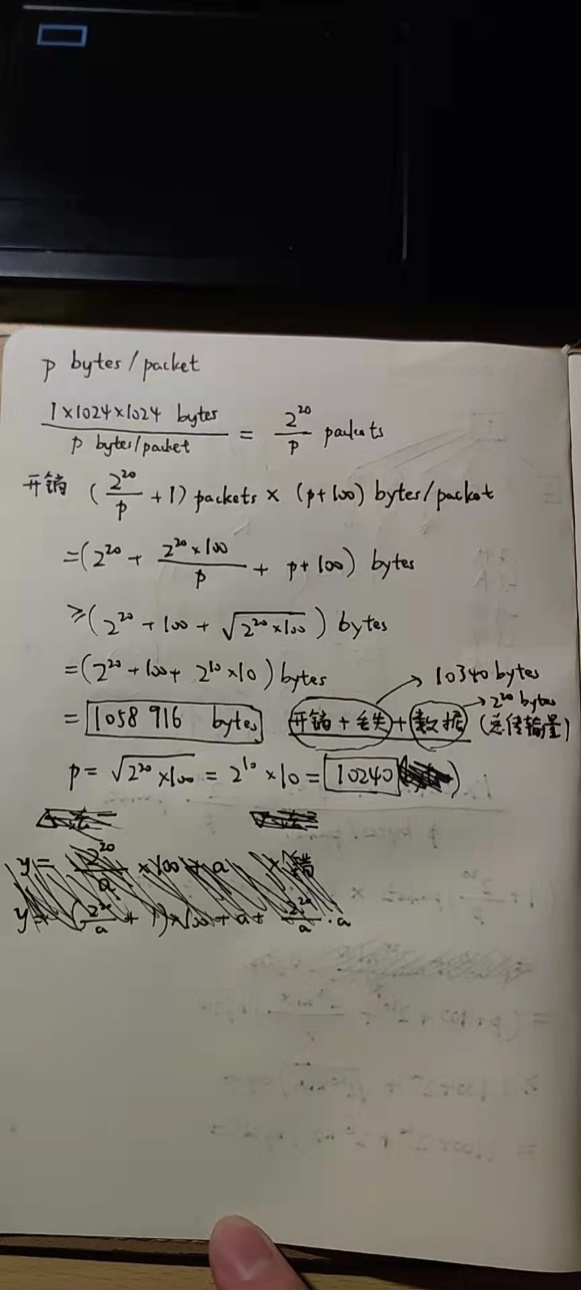 p bytes/packet
1×1024×1024 bytes / p bytes/packet = 2^20/p packets
开销 (2^20/p + 1) packets × (p+100) bytes/packet
=(2^20 + 2^20×100/p + p+100) bytes
≥(2^20 + 100 + √(2^20×100)) bytes
=(2^20 + 100 + 2^10×10) bytes → 10340 bytes
= 1058 916 bytes 开销+丢失+数据 → 2^20 bytes (总传输量)
p = √(2^20×100) = 2^10×10 = 10240 )